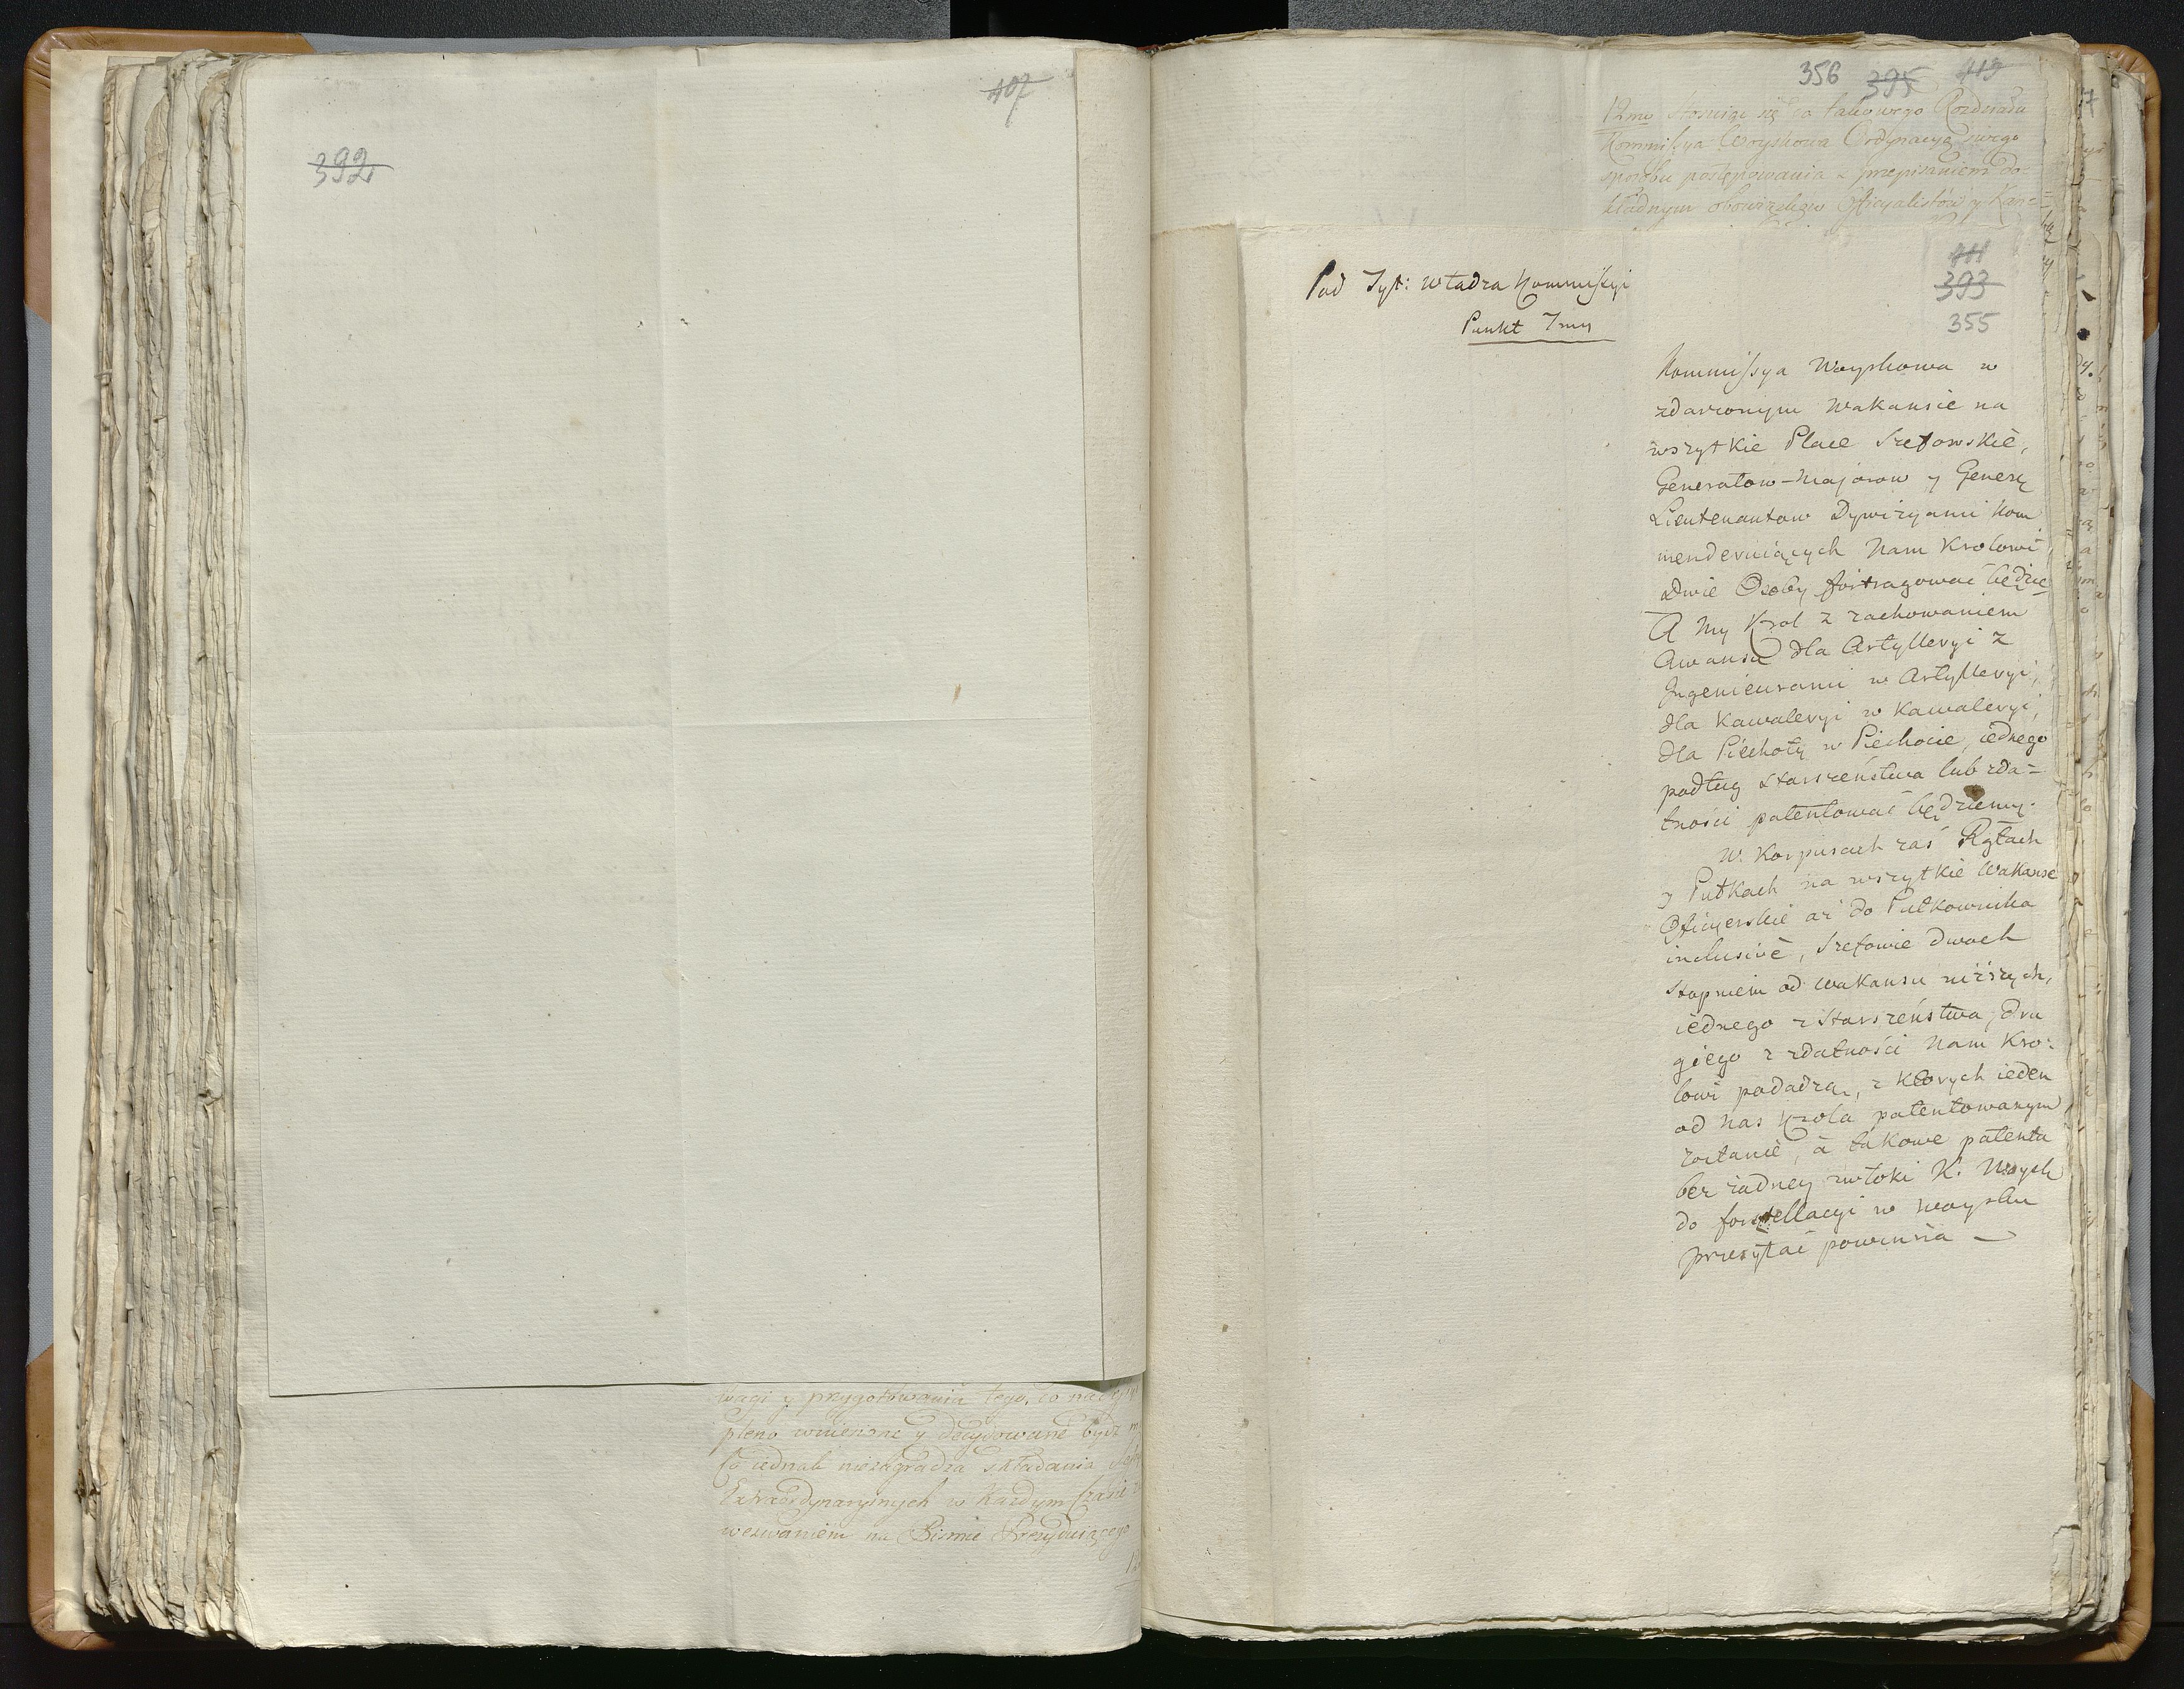 407
392
wagi y przygotowania tego, co na
pleno wniesione y decydowane bydź
Co iednak niezagradza składania
Extraordynaryinych w każdym czasie
wezwaniem na Pismie Prezyduiącego
356 395 413
12mo Stosuiąc się do takowego Rozdziału
Kommissya Woyskowa Ordynacyą swego
sposobu postępowania z przepisaniem do=
kładnym obowiązków Officyalistów y Kan=
411
393
355
Pod Tyt: władza Kommissyi
Punkt 7my
Kommissya Woyskowa w
zdarzonym Wakansie na
wszytkie Place Szefowskie,
Generałow-Majorow y Generę
Lieutenantow Dywizyami kom
menderuiących Nam Krolowi
Dwie Osoby fortragować będzie
A My Krol z zachowaniem
Awansu dla Artylleryi z
Ingenieurami w Artylleryi,
dla Kawaleryi w Kawaleryi,
dla Piechoty w Piechocie, iednego
podług starszeństwa lub zda=
tności patentować będziemy.
W Korpusach zaś Rgtach
y Pułkach na wszytkie Wakanse
Oficyerskie aż do Pułkownika
inclusive, Szefowie dwoch
stopniem od wakansu niższych,
iednego z starszeństwa, dru
giego z zdatności Nam Kro=
lowi podadzą, z ktorych ieden
od Nas Krola patentowanym
zostanie, a takowe patenta
bez żadney zwłoki K. Woysk
do forsztellacyi w woysku
przesyłać powinna —